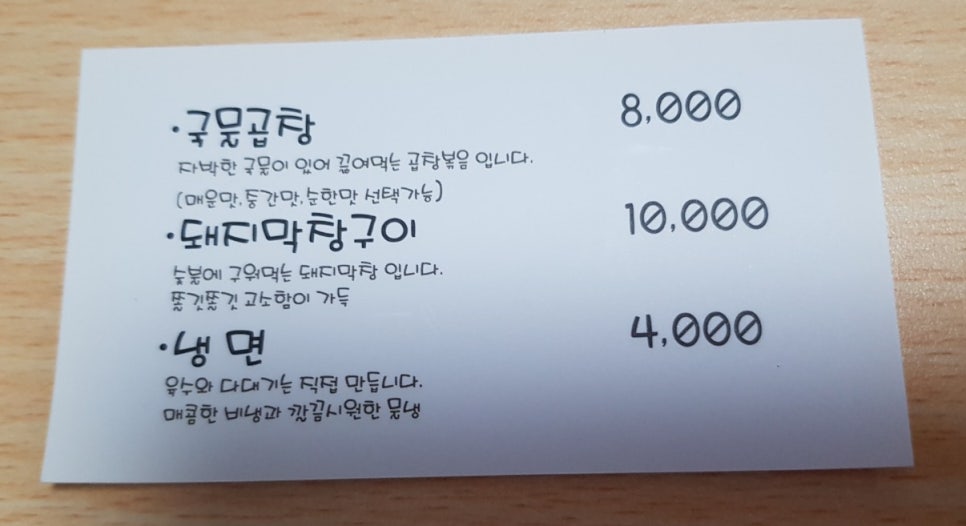 ·국물곱창 8,000
자박한 국물이 있어 끓여먹는 곱창볶음 입니다.
(매운맛,중간맛,순한맛 선택가능)
·돼지막창구이 10,000
숯불에 구워먹는 돼지막창 입니다.
쫄깃쫄깃 고소함이 가득
·냉면 4,000
육수와 다대기는 직접 만듭니다.
매콤한 비냉과 깔끔시원한 물냉